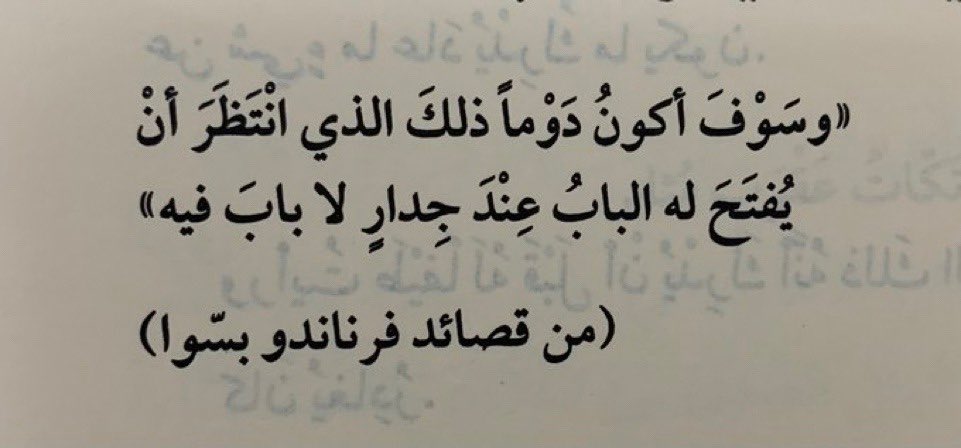 «وسَوْفَ أكونُ دَوْماً ذلكَ الذي انْتَظَرَ أنْ
يُفتَحَ له البابُ عِنْدَ جِدارٍ لا بابَ فيه»
(من قصائد فرناندو بسّوا)